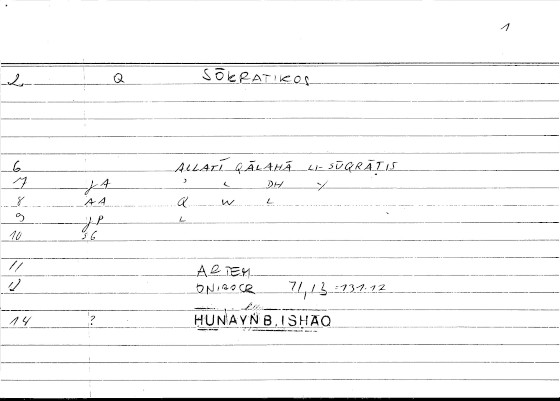 1
2 Q SŌKRATIKOS
6 ALLATĪ QĀLAHĀ LI-SŪQRĀṬIS
7 jA ʾ L DH Y
8 AA Q W L
9 jP L
10 SG
11 ARTEM
12 ONIROCR 71,13 = 131.12
14 ? HUNAYN B. ISHAQ